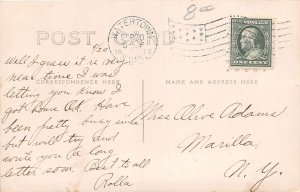 8 00
WATERTOWN
POST CARD
9/20.
Will I guess it is very
near time I was
letting you know I
got Home O.K. Have
been pretty busy since
but will try and
write you a long
letter soon. Best to all
Rolla
AND MESSAGE
NAME AND ADDRESS HERE
ONE CENT
Miss Alive Adams
Marilla,
N. Y.